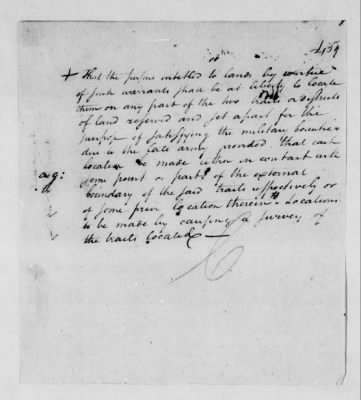 + That the persons intitled to lands by virtue
of such warrants shall be at liberty to locate
them on any part of the two tracts or districts
of land reserved and set apart for the
purpose of satisfying the military bounties
due to the late army provided that each
location be made in contact with
some point or part of the external
boundary of the said tracts respectively or
of some prior location therein Locations
to be made by causing a survey of
the tracts located